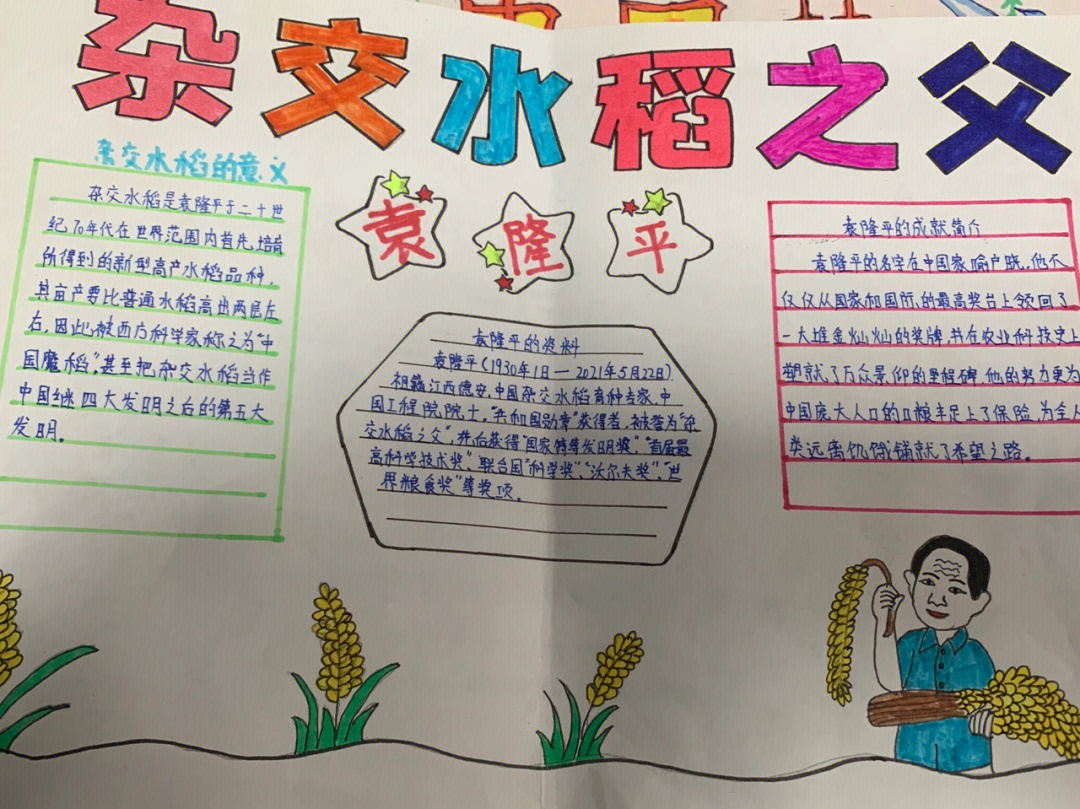 杂交水稻之父
袁隆平
杂交水稻的意义
杂交水稻是袁隆平于二十世
纪70年代在世界范围内首先培育
所得到的新型高产水稻品种,
其亩产要比普通水稻高出两层左
右,因此,被西方科学家称之为“中
国魔稻”,甚至把杂交水稻当作
中国继四大发明之后的第五大
发明。
袁隆平的资料
袁隆平(1930年1日—2021年5月22日)
祖籍江西德安,中国杂交水稻育种专家,中
国工程院院士,“共和国勋章”获得者,被誉为“杂
交水稻之父”,并后获得“国家特等发明奖”、“首届最
高科学技术奖”、联合国“科学奖”、“沃尔夫奖”、“世
界粮食奖”等奖项。
袁隆平的成就简介
袁隆平的名字在中国家喻户晓,他不
仅仅从国家和国际的最高奖台上领回了
一大堆金灿灿的奖牌,并在农业科技史上
塑就了万众景仰的里程碑,他的努力更为
中国庞大人口的口粮丰足上了保险,为全人
类远离饥饿铺就了希望之路。